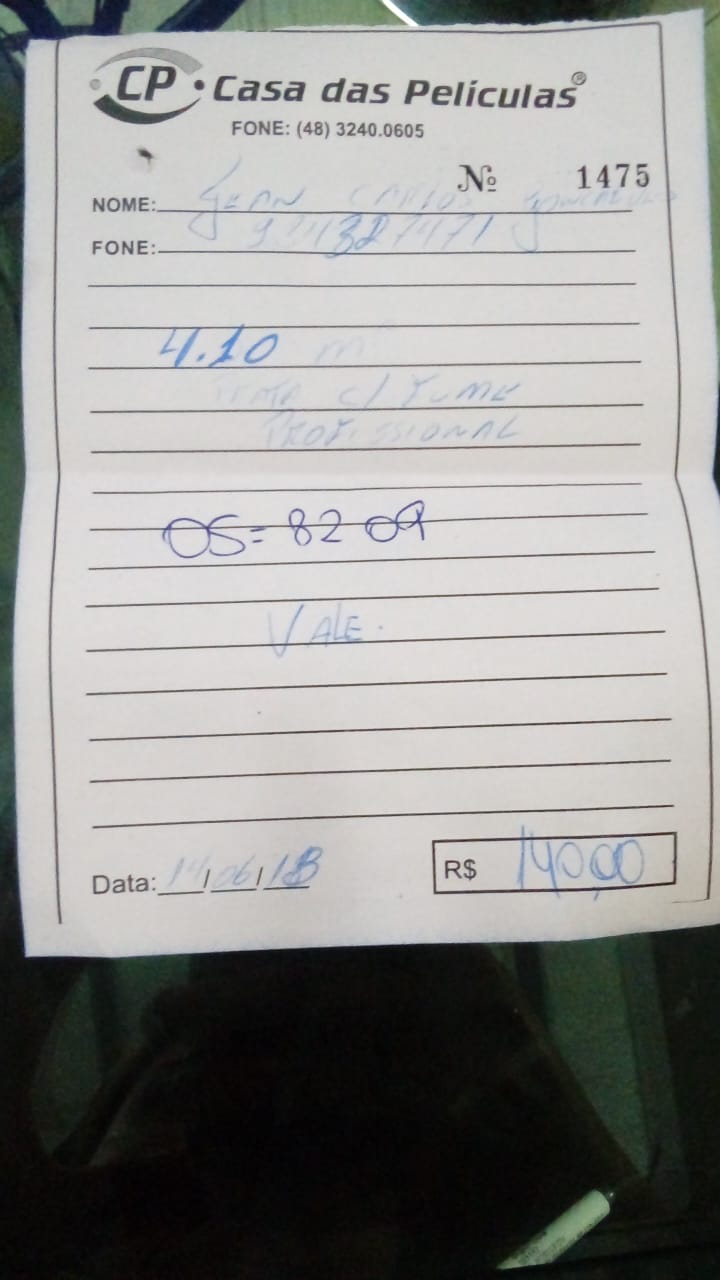 CP • Casa das Películas®
FONE: (48) 3240.0605
Nº 1475
NOME: Jean Carlos Gonçalves
FONE:
4.10 m²
PROFISSIONAL
OS= 8209
VALE.
Data: 14/06/18 R$ 140,00